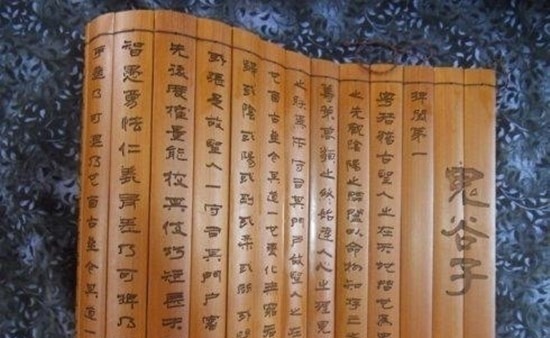 鬼谷子
捭闔第一
粵若稽古聖人之在天地間也為眾
之先觀陰陽之開闔以命物知存亡之
籌策萬類之終始達人心之理見
之朕焉而守司其門戶故聖人之
也自古至今其道一也變化無窮各
歸或陰或陽或柔或剛或
或張是故聖人一守司其門戶審
先後度權量能校其伎巧短長夫
智愚勇怯仁義有差乃可捭乃